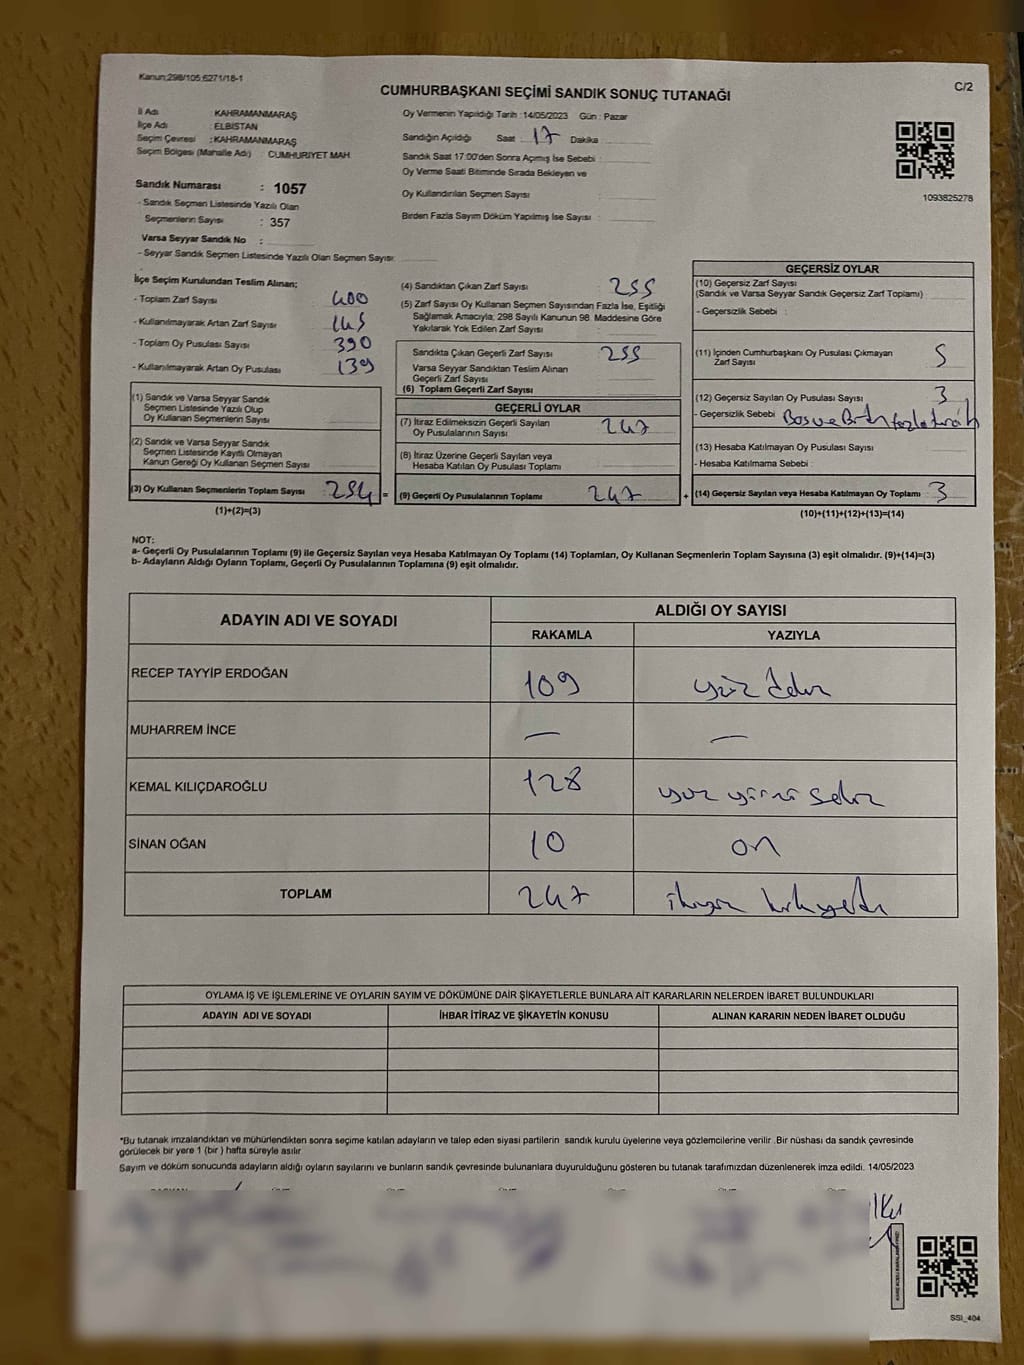 Kanun:298/105;6271/18-1
C/2
CUMHURBAŞKANI SEÇİMİ SANDIK SONUÇ TUTANAĞI
İl Adı : KAHRAMANMARAŞ
İlçe Adı : ELBİSTAN
Seçim Çevresi : KAHRAMANMARAŞ
Seçim Bölgesi (Mahalle Adı) : CUMHURİYET MAH
Sandık Numarası : 1057
- Sandık Seçmen Listesinde Yazılı Olan
Seçmenlerin Sayısı : 357
Varsa Seyyar Sandık No :
- Seyyar Sandık Seçmen Listesinde Yazılı Olan Seçmen Sayısı:
Oy Vermenin Yapıldığı Tarih :14/05/2023 Gün : Pazar
Sandığın Açıldığı Saat : 17 Dakika
Sandık Saat 17:00'den Sonra Açımış İse Sebebi :
Oy Verme Saati Bitiminde Sırada Bekleyen ve
Oy Kullandırılan Seçmen Sayısı :
Birden Fazla Sayım Döküm Yapılmış İse Sayısı :
1093825278
İlçe Seçim Kurulundan Teslim Alınan;
- Toplam Zarf Sayısı : 400
- Kullanılmayarak Artan Zarf Sayısı : 145
- Toplam Oy Pusulası Sayısı : 390
- Kullanılmayarak Artan Oy Pusulası : 139
(1) Sandık ve Varsa Seyyar Sandık
Seçmen Listesinde Yazılı Olup
Oy Kullanan Seçmenlerin Sayısı :
(2) Sandık ve Varsa Seyyar Sandık
Seçmen Listesinde Kayıtlı Olmayan
Kanun Gereği Oy Kullanan Seçmen Sayısı :
(3) Oy Kullanan Seçmenlerin Toplam Sayısı : 254 =
(1)+(2)=(3)
(4) Sandıktan Çıkan Zarf Sayısı : 255
(5) Zarf Sayısı Oy Kullanan Seçmen Sayısından Fazla İse, Eşitliği
Sağlamak Amacıyla; 298 Sayılı Kanunun 98. Maddesine Göre
Yakılarak Yok Edilen Zarf Sayısı :
Sandıkta Çıkan Geçerli Zarf Sayısı : 255
Varsa Seyyar Sandıktan Teslim Alınan
Geçerli Zarf Sayısı :
(6) Toplam Geçerli Zarf Sayısı :
GEÇERLİ OYLAR
(7) İtiraz Edilmeksizin Geçerli Sayılan
Oy Pusulalarının Sayısı : 247
(8) İtiraz Üzerine Geçerli Sayılan veya
Hesaba Katılan Oy Pusulası Toplamı :
(9) Geçerli Oy Pusulalarının Toplamı : 247 +
GEÇERSİZ OYLAR
(10) Geçersiz Zarf Sayısı
(Sandık ve Varsa Seyyar Sandık Geçersiz Zarf Toplamı) :
- Geçersizlik Sebebi :
(11) İçinden Cumhurbaşkanı Oy Pusulası Çıkmayan
Zarf Sayısı : 5
(12) Geçersiz Sayılan Oy Pusulası Sayısı : 3
- Geçersizlik Sebebi : Boş ve
(13) Hesaba Katılmayan Oy Pusulası Sayısı :
- Hesaba Katılmama Sebebi :
(14) Geçersiz Sayılan veya Hesaba Katılmayan Oy Toplamı : 3
(10)+(11)+(12)+(13)=(14)
NOT:
a- Geçerli Oy Pusulalarının Toplamı (9) ile Geçersiz Sayılan veya Hesaba Katılmayan Oy Toplamı (14) Toplamları, Oy Kullanan Seçmenlerin Toplam Sayısına (3) eşit olmalıdır. (9)+(14)=(3)
b- Adayların Aldığı Oyların Toplamı, Geçerli Oy Pusulalarının Toplamına (9) eşit olmalıdır.
ADAYIN ADI VE SOYADI
ALDIĞI OY SAYISI
RAKAMLA YAZIYLA
RECEP TAYYİP ERDOĞAN 109 yüz
MUHARREM İNCE — —
KEMAL KILIÇDAROĞLU 128 yüz yirmi sekiz
SİNAN OĞAN 10 on
TOPLAM 247 ikiyüz kırkyedi
OYLAMA İŞ VE İŞLEMLERİNE VE OYLARIN SAYIM VE DÖKÜMÜNE DAİR ŞİKAYETLERLE BUNLARA AİT KARARLARIN NELERDEN İBARET BULUNDUKLARI
ADAYIN ADI VE SOYADI İHBAR İTİRAZ VE ŞİKAYETİN KONUSU ALINAN KARARIN NEDEN İBARET OLDUĞU
*Bu tutanak imzalandıktan ve mühürlendikten sonra seçime katılan adayların ve talep eden siyasi partilerin sandık kurulu üyelerine veya gözlemcilerine verilir .Bir nüshası da sandık çevresinde
görülecek bir yere 1 (bir ) hafta süreyle asılır
Sayım ve döküm sonucunda adayların aldığı oyların sayılarını ve bunların sandık çevresinde bulunanlara duyurulduğunu gösteren bu tutanak tarafımızdan düzenlenerek imza edildi. 14/05/2023
SSI_404